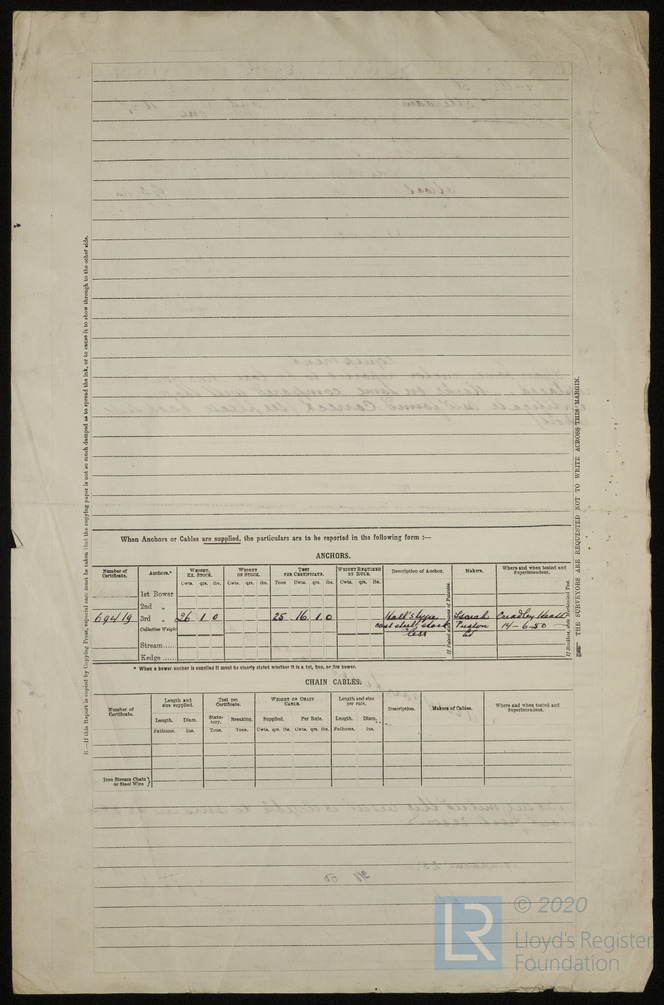 When Anchors or Cables are supplied, the particulars are to be reported in the following form :—
ANCHORS.
Number of Certificate. Anchors.* Weight, Ex. Stock. Weight of Stock. Test per Certificate. Weight Required by Rule. Description of Anchor. Makers. Where and when tested and Superintendent.
Cwts. qrs. lbs. Cwts. qrs. lbs. Tons Cwts. qrs. lbs. Cwts. qrs. lbs.
1st Bower
2nd „
69419 3rd „ 26 1 0 25 16 1 0 Hall's type Isaiah Cradley Heath
Collective Weight cast steel, stock Preston 14-6-50
less Ld
Stream
Kedge
* When a bower anchor is supplied it must be clearly stated whether it is a 1st, 2nd, or 3rd bower.
CHAIN CABLES.
Number of Certificate. Length and size supplied. Test per Certificate. Weight of Chain Cable. Length and size per rule. Description. Makers of Cables. Where and when tested and Superintendent.
Length. Diam. Statutory. Breaking. Supplied. Per Rule. Length. Diam.
Fathoms. Ins. Tons. Tons. Cwts. qrs. lbs. Cwts. qrs. lbs. Fathoms. Ins.
Iron Stream Chain or Steel Wire
If this Report is copied by Copying Press, especial care must be taken that the copying paper is not so much damped as to spread the ink, or to cause it to show through to the other side.
THE SURVEYORS ARE REQUESTED NOT TO WRITE ACROSS THIS MARGIN.
LR
© 2020
Lloyd's Register
Foundation